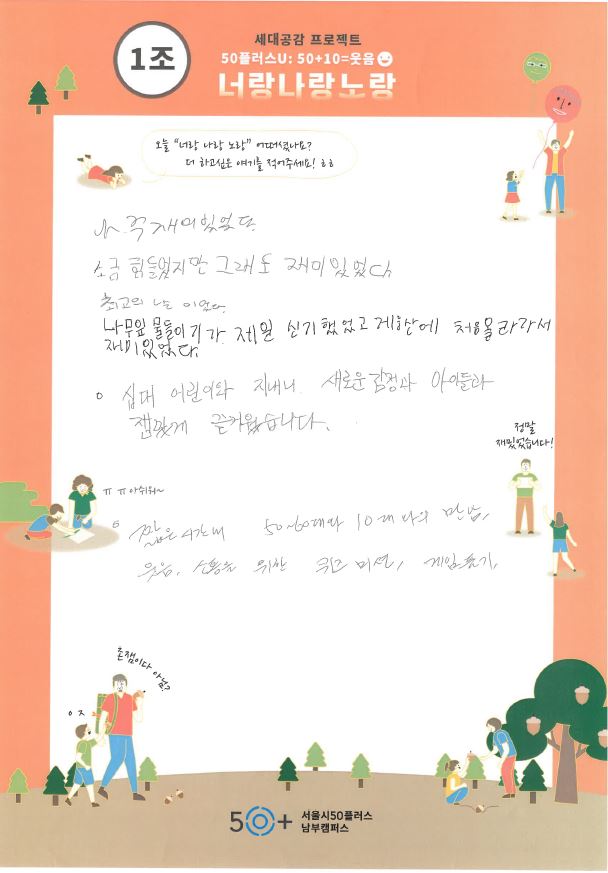 1조
세대공감 프로젝트
50플러스U: 50+10=웃음
너랑나랑노랑
오늘 "너랑 나랑 노랑" 어떠셨나요?
더 하고싶은 얘기를 적어주세요! ㅎㅎ
재미있었다
조금 힘들었지만 그래도 재미있었다
최고의 나는 이었다.
나무잎 물들이기가 제일 신기했었고 처음올라가서
재미있었다.
십대 어린이와 지내니 새로운감정과 아이들과
잼있게 즐거웠습니다.
정말
재밌었습니다!
ㅠㅠ 아쉬워~
짧은시간내 50~60대와 10대와의 만남,
웃음, 소통을 위한 퀴즈 미션, 게임
존잼이다 아님?
ㅇㅈ
50+ 서울시50플러스
남부캠퍼스